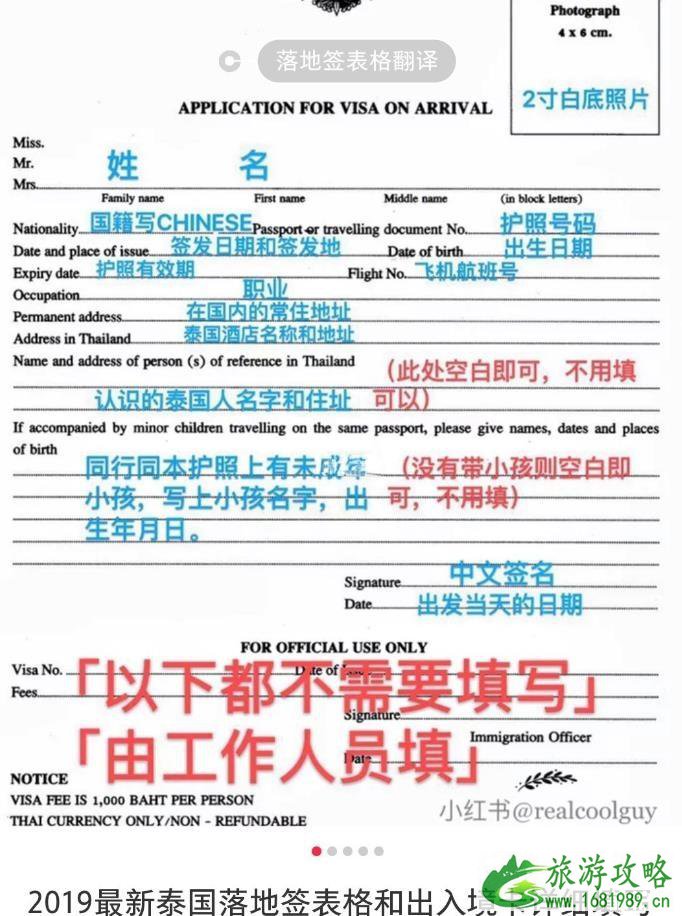 Photograph
4 x 6 cm.
落地签表格翻译
2寸白底照片
APPLICATION FOR VISA ON ARRIVAL
Miss.
Mr. 姓 名
Mrs.
Family name First name Middle name (in block letters)
Nationality 国籍写CHINESE Passport or travelling document No. 护照号码
Date and place of issue 签发日期和签发地 Date of birth 出生日期
Expiry date 护照有效期 Flight No. 飞机航班号
Occupation 职业
Permanent address 在国内的常住地址
Address in Thailand 泰国酒店名称和地址
Name and address of person (s) of reference in Thailand (此处空白即可，不用填
认识的泰国人名字和住址 可以)
If accompanied by minor children travelling on the same passport, please give names, dates and places
of birth
同行同本护照上有未成年 (没有带小孩则空白即
小孩，写上小孩名字，出 可，不用填)
生年月日。
Signature 中文签名
Date 出发当天的日期
FOR OFFICIAL USE ONLY
Visa No. Date of
Fees
「以下都不需要填写」
Signature
Immigration Officer
「由工作人员填」
Date
NOTICE
VISA FEE IS 1,000 BAHT PER PERSON
THAI CURRENCY ONLY/NON - REFUNDABLE
小红书@realcoolguy
旅游攻略
www.1681989.cn
2019最新泰国落地签表格和出入境